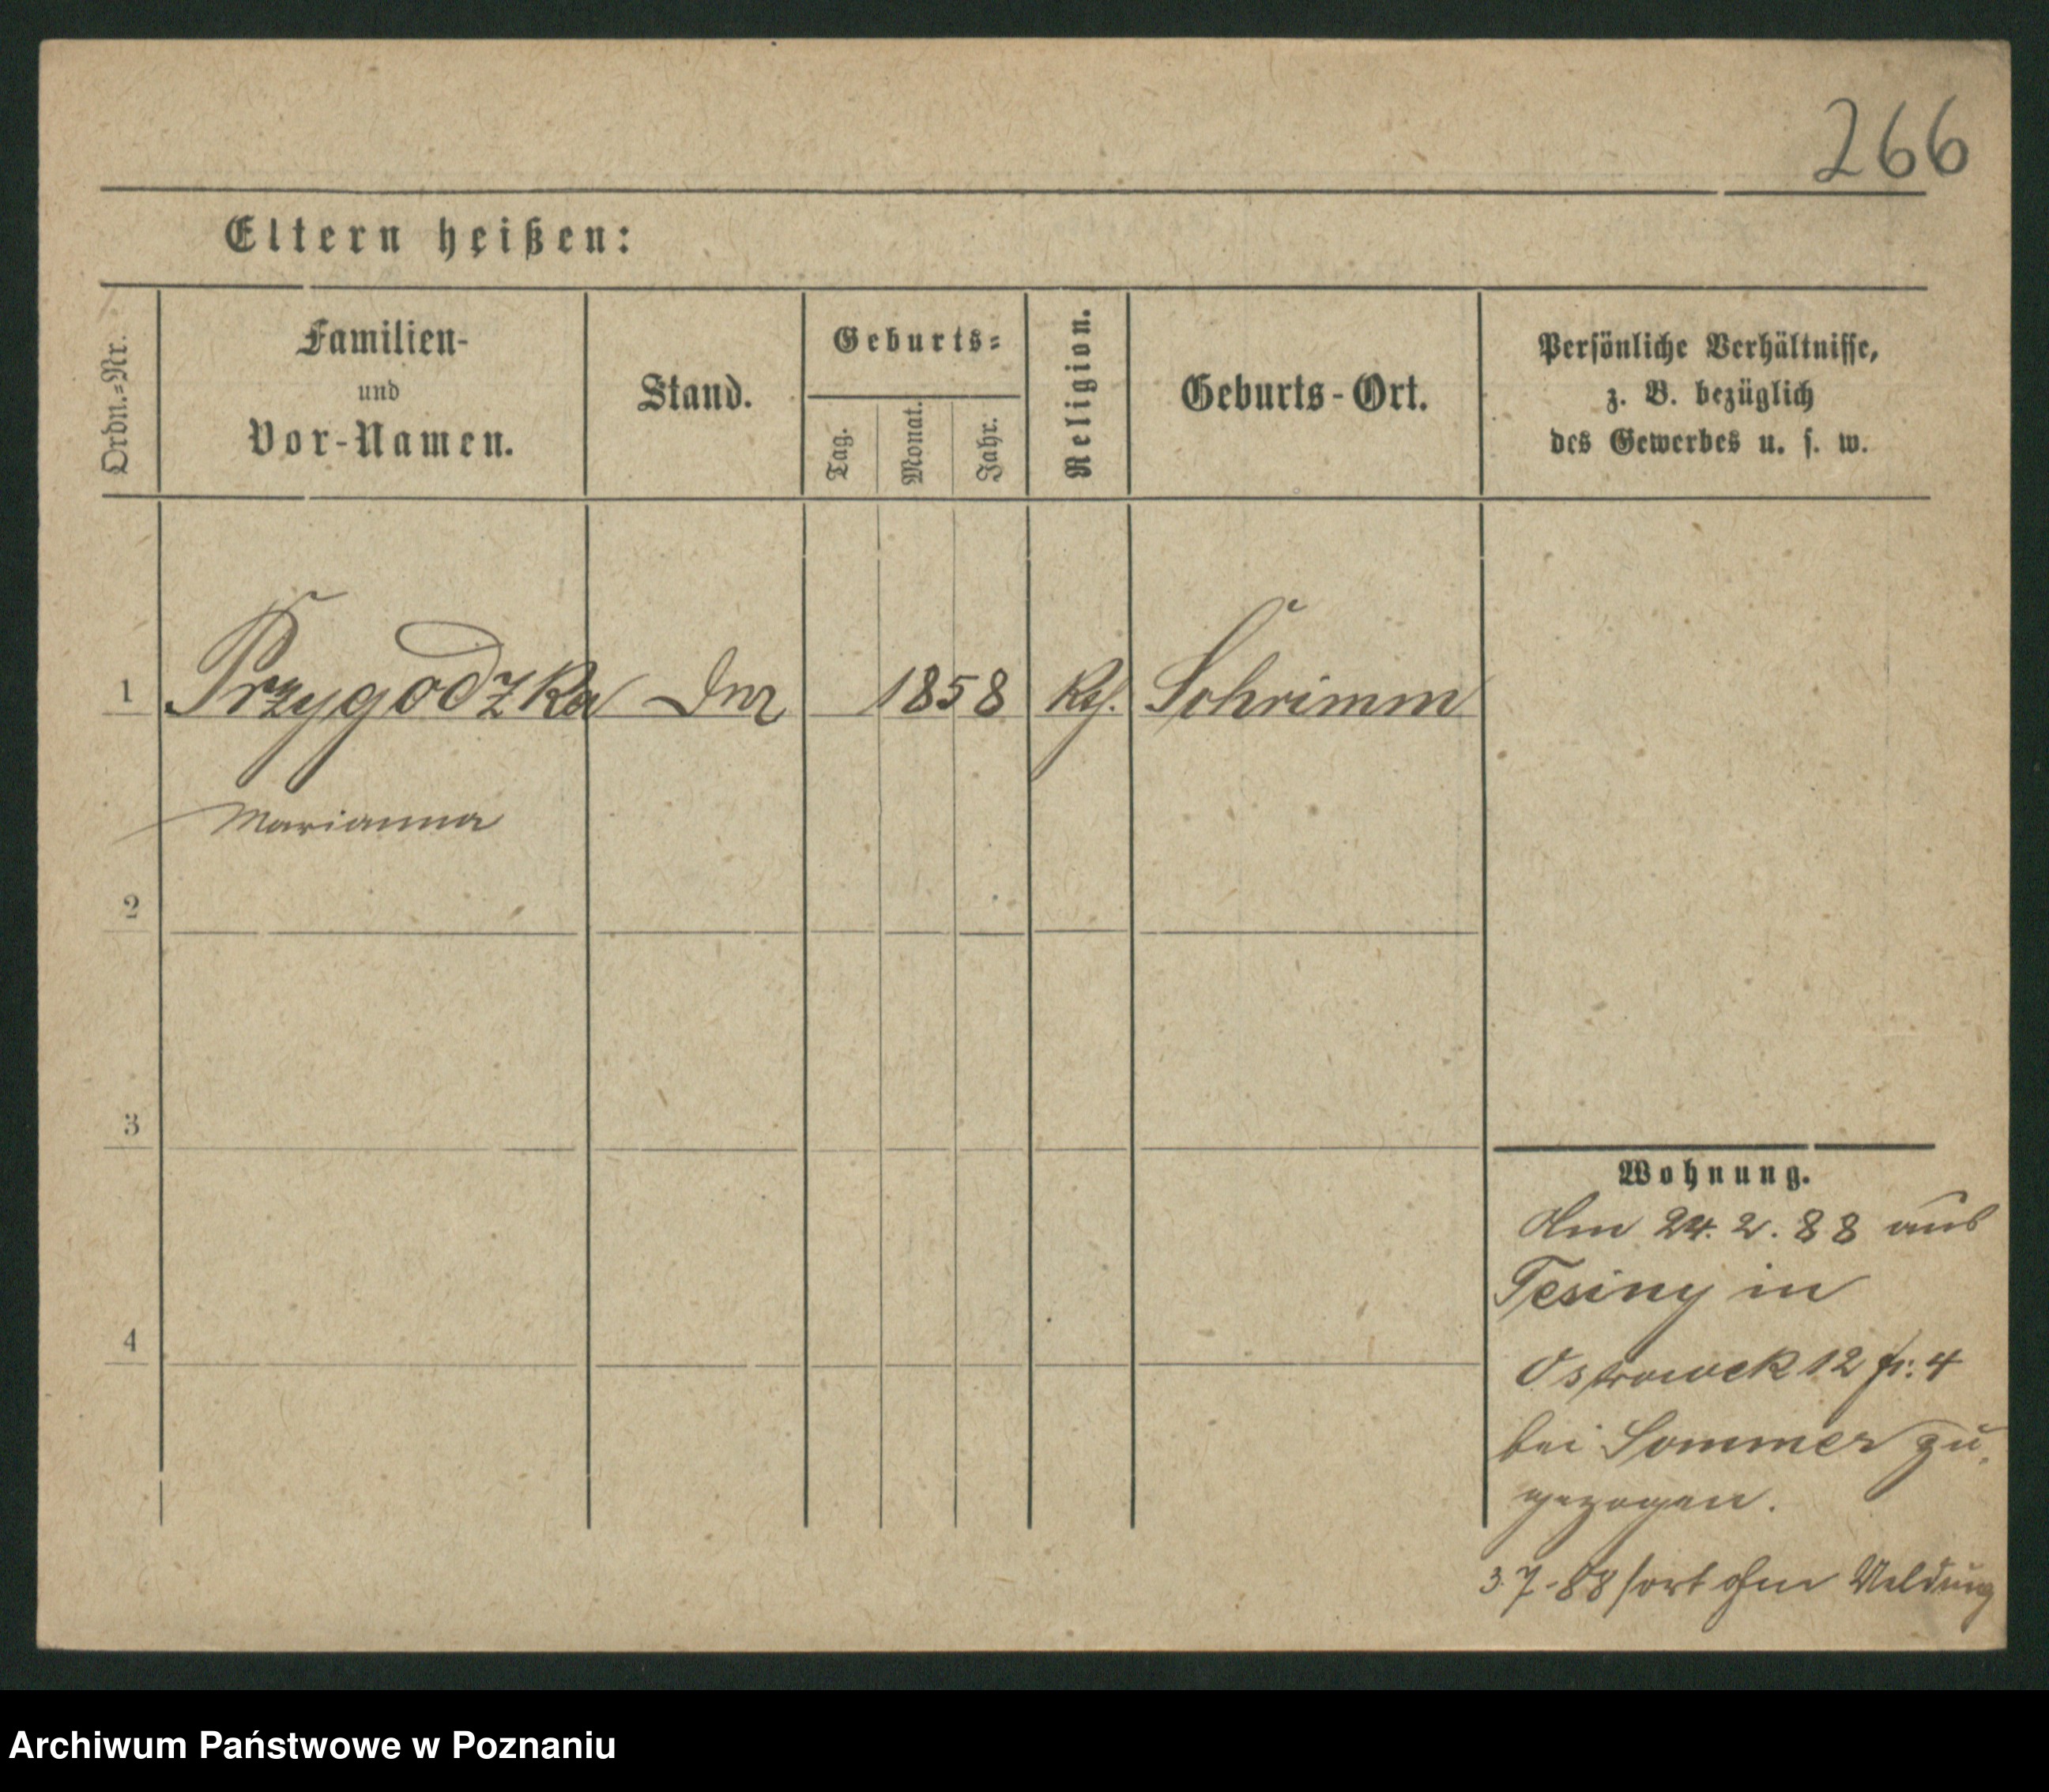 266
Eltern heißen:
Ordn.=Nr.
Familien-
und
Vor-Namen.
Stand.
Geburts=
Tag.
Monat.
Jahr.
Religion.
Geburts-Ort.
Persönliche Verhältnisse,
z. B. bezüglich
des Gewerbes u. s. w.
1 Przygodzka 1858 Schrimm
Marianna
2
3
4
Wohnung.
Am 24.2.88 aus
in
Ostrowek 12 4
bei Sommer zu
gezogen.
3.7.88 fort ohne Meldung
Archiwum Państwowe w Poznaniu